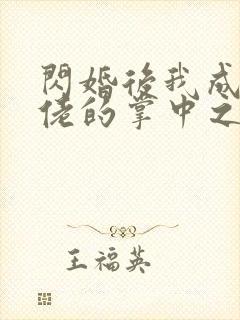 閃婚後我成
佬的掌中之
王福英